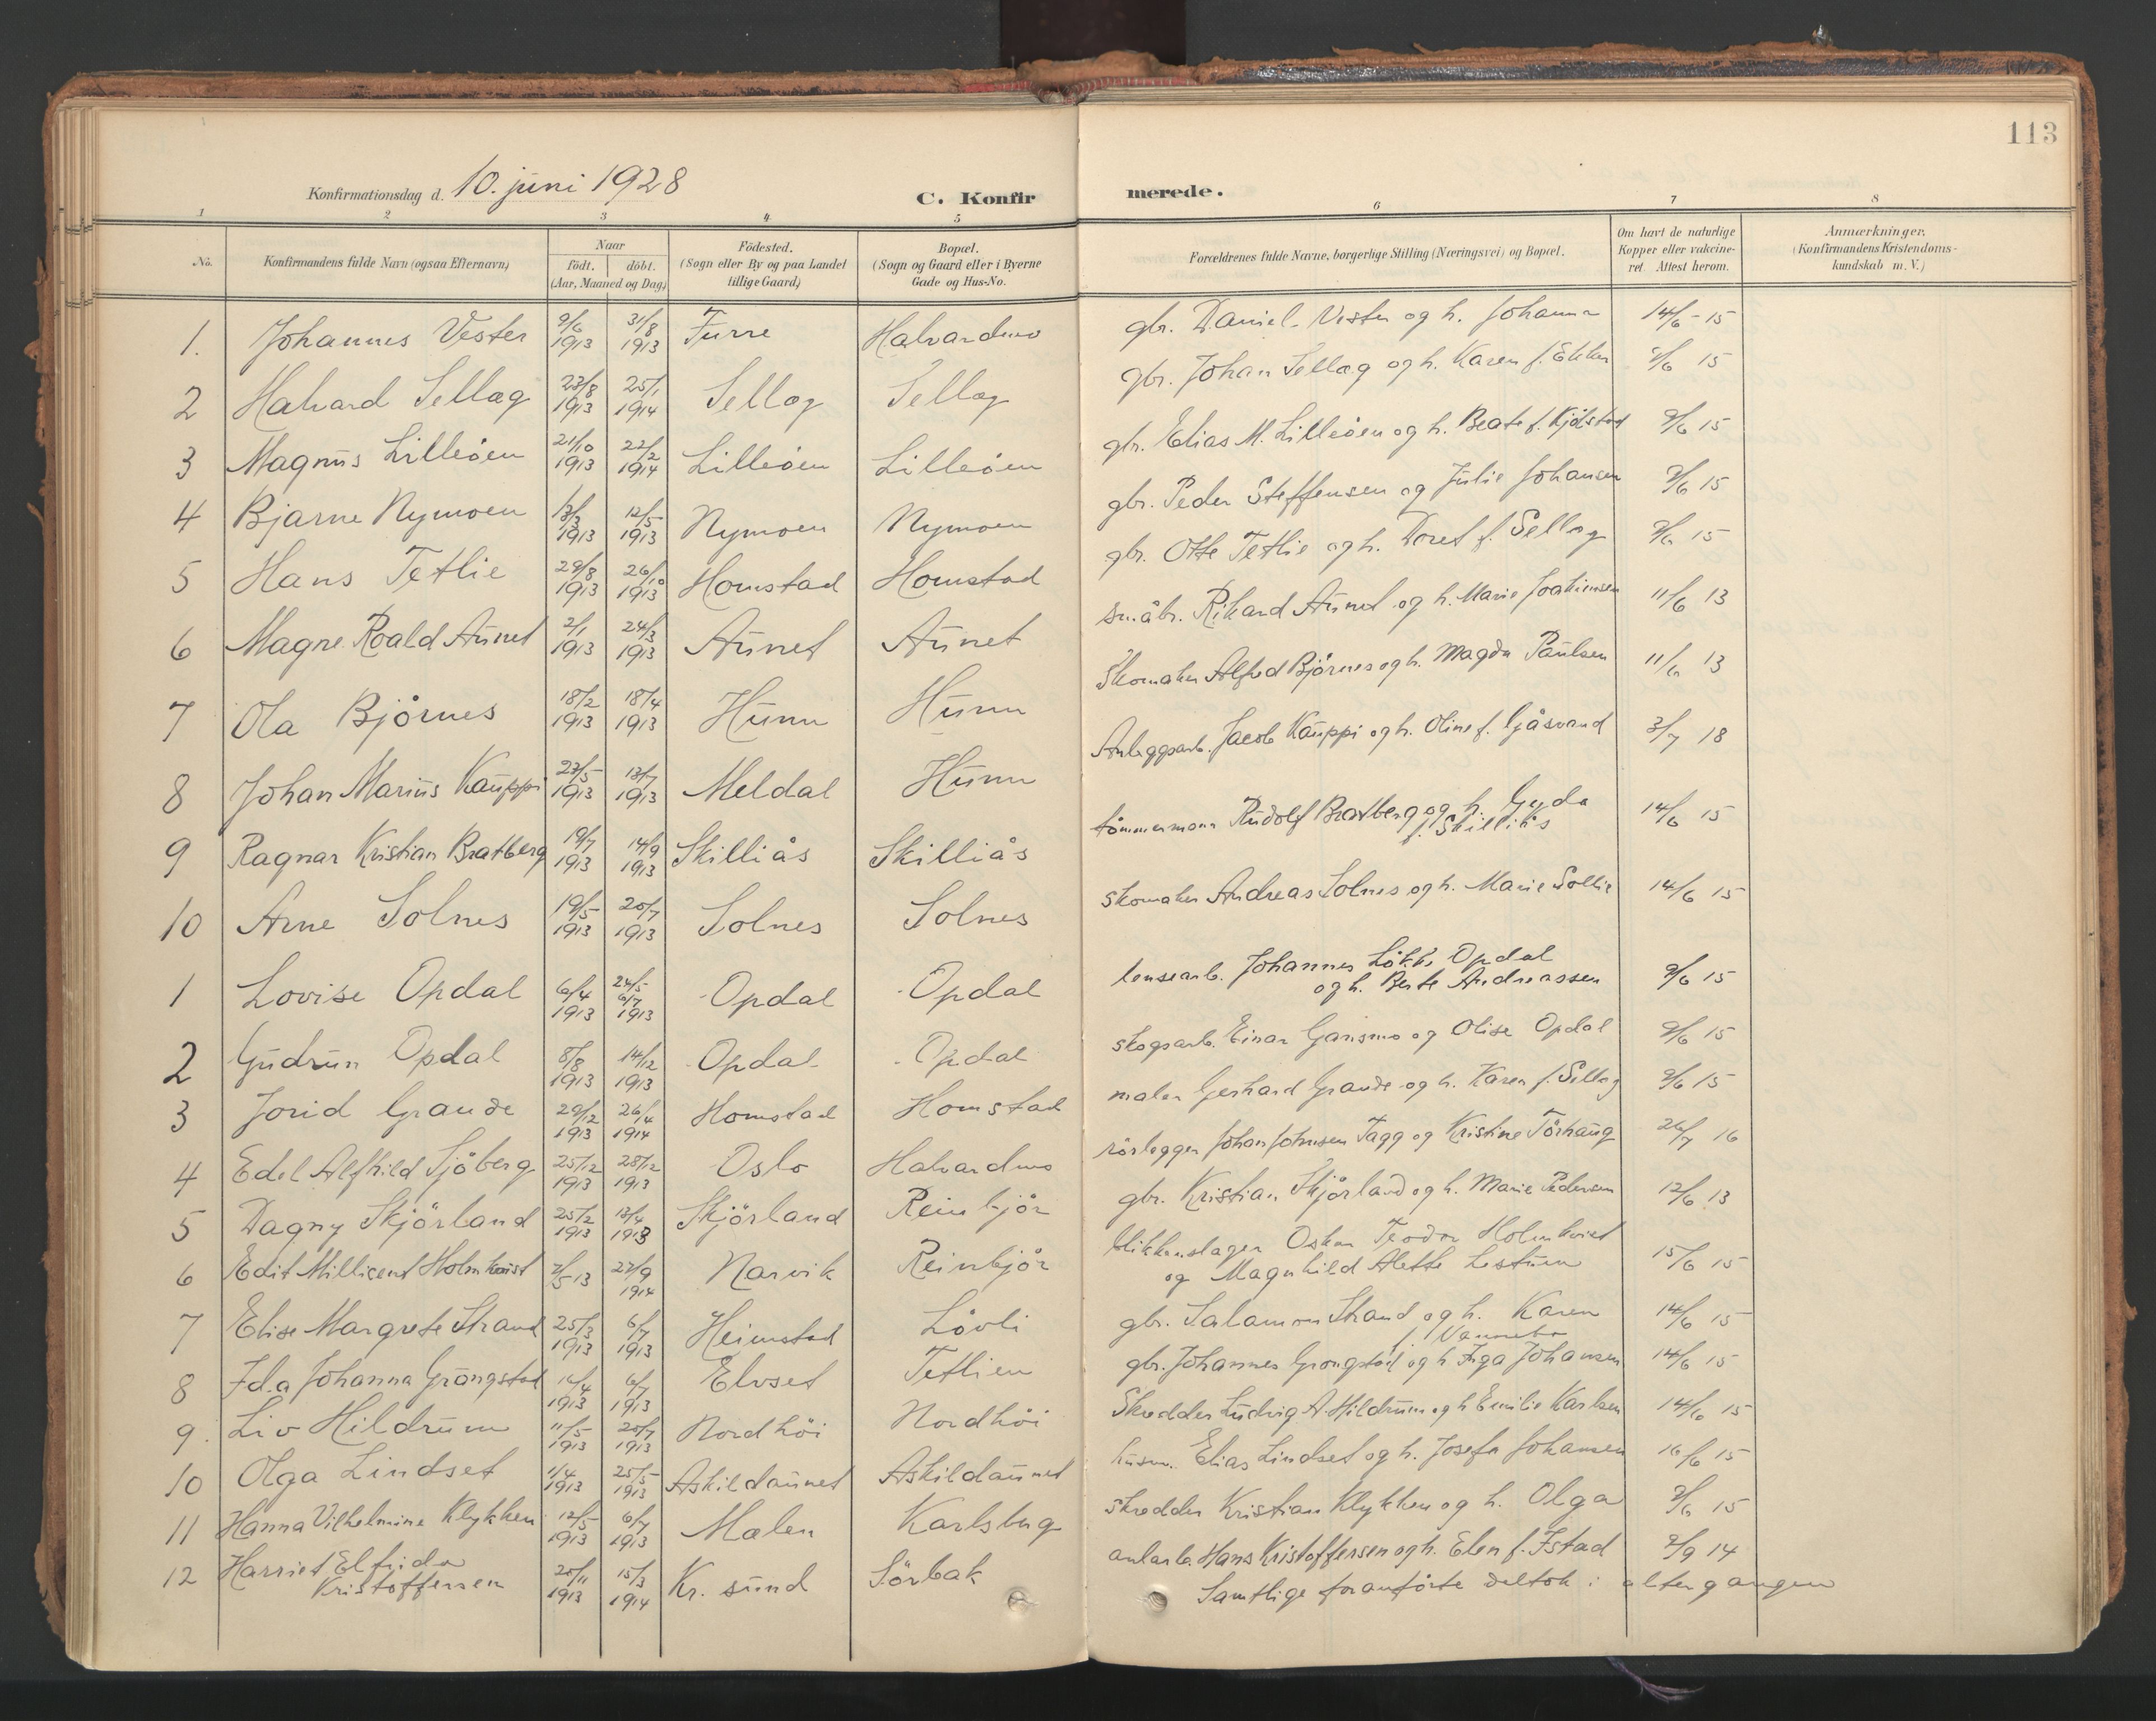 113
Konfirmationsdag d. 10. juni 1928
C. Konfirmerede.
1 2 3 4 5 6 7 8
No. Konfirmandens fulde Navn (ogsaa Efternavn) Naar födt. döbt. (Aar, Maaned og Dag) Födested. (Sogn eller By og paa Landet tillige Gaard) Bopæl. (Sogn og Gaard eller i Byerne Gade og Hus-No. Forældrenes fulde Navne, borgerlige Stilling (Næringsvei) og Bopæl. Om havt de naturlige Kopper eller vakcineret. Attest herom. Anmærkninger. (Konfirmandens Kristendomskundskab m. V.)
1. Johannes Vester 9/6 1913 31/8 1913 Furre Halvardmo gbr. Daniel Vester og h. Johanna 14/6 - 15
2 Halvard Sellæg 23/8 1913 25/1 1914 Sellæg Sellæg gbr. Johan Sellæg og h. Karen f. Ekker 9/6 15
3 Magnus Lilleöen 21/10 1913 22/2 1914 Lilleöen Lilleöen gbr. Elias M. Lilleöen og h. Beate f. Kjölstad 9/6 15
4 Bjarne Nymoen 13/3 1913 12/5 1913 Nymoen Nymoen gbr. Peder Steffensen og Julie Johansen 9/6 15
5 Hans Tetlie 29/8 1913 26/10 1913 Homstad Homstad gbr. Otte Tetlie og h. Doret f. Sellæg 9/6 15
6 Magne Roald Aunet 2/1 1913 24/3 1913 Aunet Aunet småbr. Rikard Aunet og h. Marie Joakimsen 11/6 13
7 Ola Björnes 18/2 1913 18/4 1913 Hunn Hunn Skomaker Alfred Björnes og h. Magda Paulsen 11/6 13
8 Johan Marius Kauppi 23/5 1913 13/7 1913 Meldal Hunn Anleggsarb. Jacob Kauppi og h. Oline f. Gjåsvand 3/7 18
9 Ragnar Kristian Bratberg 19/7 1913 14/9 1913 Skilliås Skilliås tömmermann Rudolf Bratberg og h. Gyda f. Skilliås 14/6 15
10 Arne Solnes 19/5 1913 20/7 1913 Solnes Solnes skomaker Andreas Solnes og h. Marie Sollie 14/6 15
1 Lovise Opdal 6/4 1913 24/5 6/7 1913 Opdal Opdal lensearb. Johannes Lökke Opdal og h. Berte Andreassen 9/6 15
2 Gudrun Opdal 8/8 1913 14/12 1913 Opdal Opdal skogsarb. Einar Gansmo og Olise Opdal 9/6 15
3 Jorid Grande 29/12 1913 26/4 1914 Homstad Homstad maler Gerhard Grande og h. Karen f. Sellæg 9/6 15
4 Edel Alfhild Sjöberg 25/12 1913 28/12 1913 Oslo Halvardmo rörlegger Johan Johnsen Tagg og Kristine Törhaug 26/7 16
5 Dagny Skjörland 25/2 1913 13/4 1913 Skjörland Reinbjör gbr. Kristian Skjörland og h. Marie Pedersen 12/6 13
6 Edit Millicent Holmkvist 2/5 13 27/9 1914 Narvik Reinbjör blikkenslager Oskar Teodor Holmkvist og Magnhild Alette Lestuen 15/6 15
7 Elise Margrete Strand 25/3 1913 6/7 1913 Heimstad Lövli gbr. Salamon Strand og h. Karen f. Vannebo 14/6 15
8 Ida Johanna Grongstad 16/4 1913 6/7 1913 Elvset Tetlien gbr. Johannes Grongstad og h Inga Johansen 14/6 15
9. Liv Hildrum 11/5 1913 20/7 1913 Nordhöi Nordhöi Skredder Ludvig A. Hildrum og h Emilie Karlsen 14/6 15
10 Olga Lindset 1/4 1913 25/5 1913 Askildaunet Askildaunet husm. Elias Lindset og h. Josefa Johansen 16/6 15
11 Hanna Vilhelmine Klykken 12/5 1913 6/7 1913 Mælen Karlsberg skredder Kristian Klykken og h. Olga 9/6 15
12 Harriet Elfrida Kristoffersen 20/11 1913 15/3 1914 Kr. sund Sörbak anlarb. Hans Kristoffersen og h. Elen f. Istad 2/9 14
Samtlige foranförte deltok i altergangen